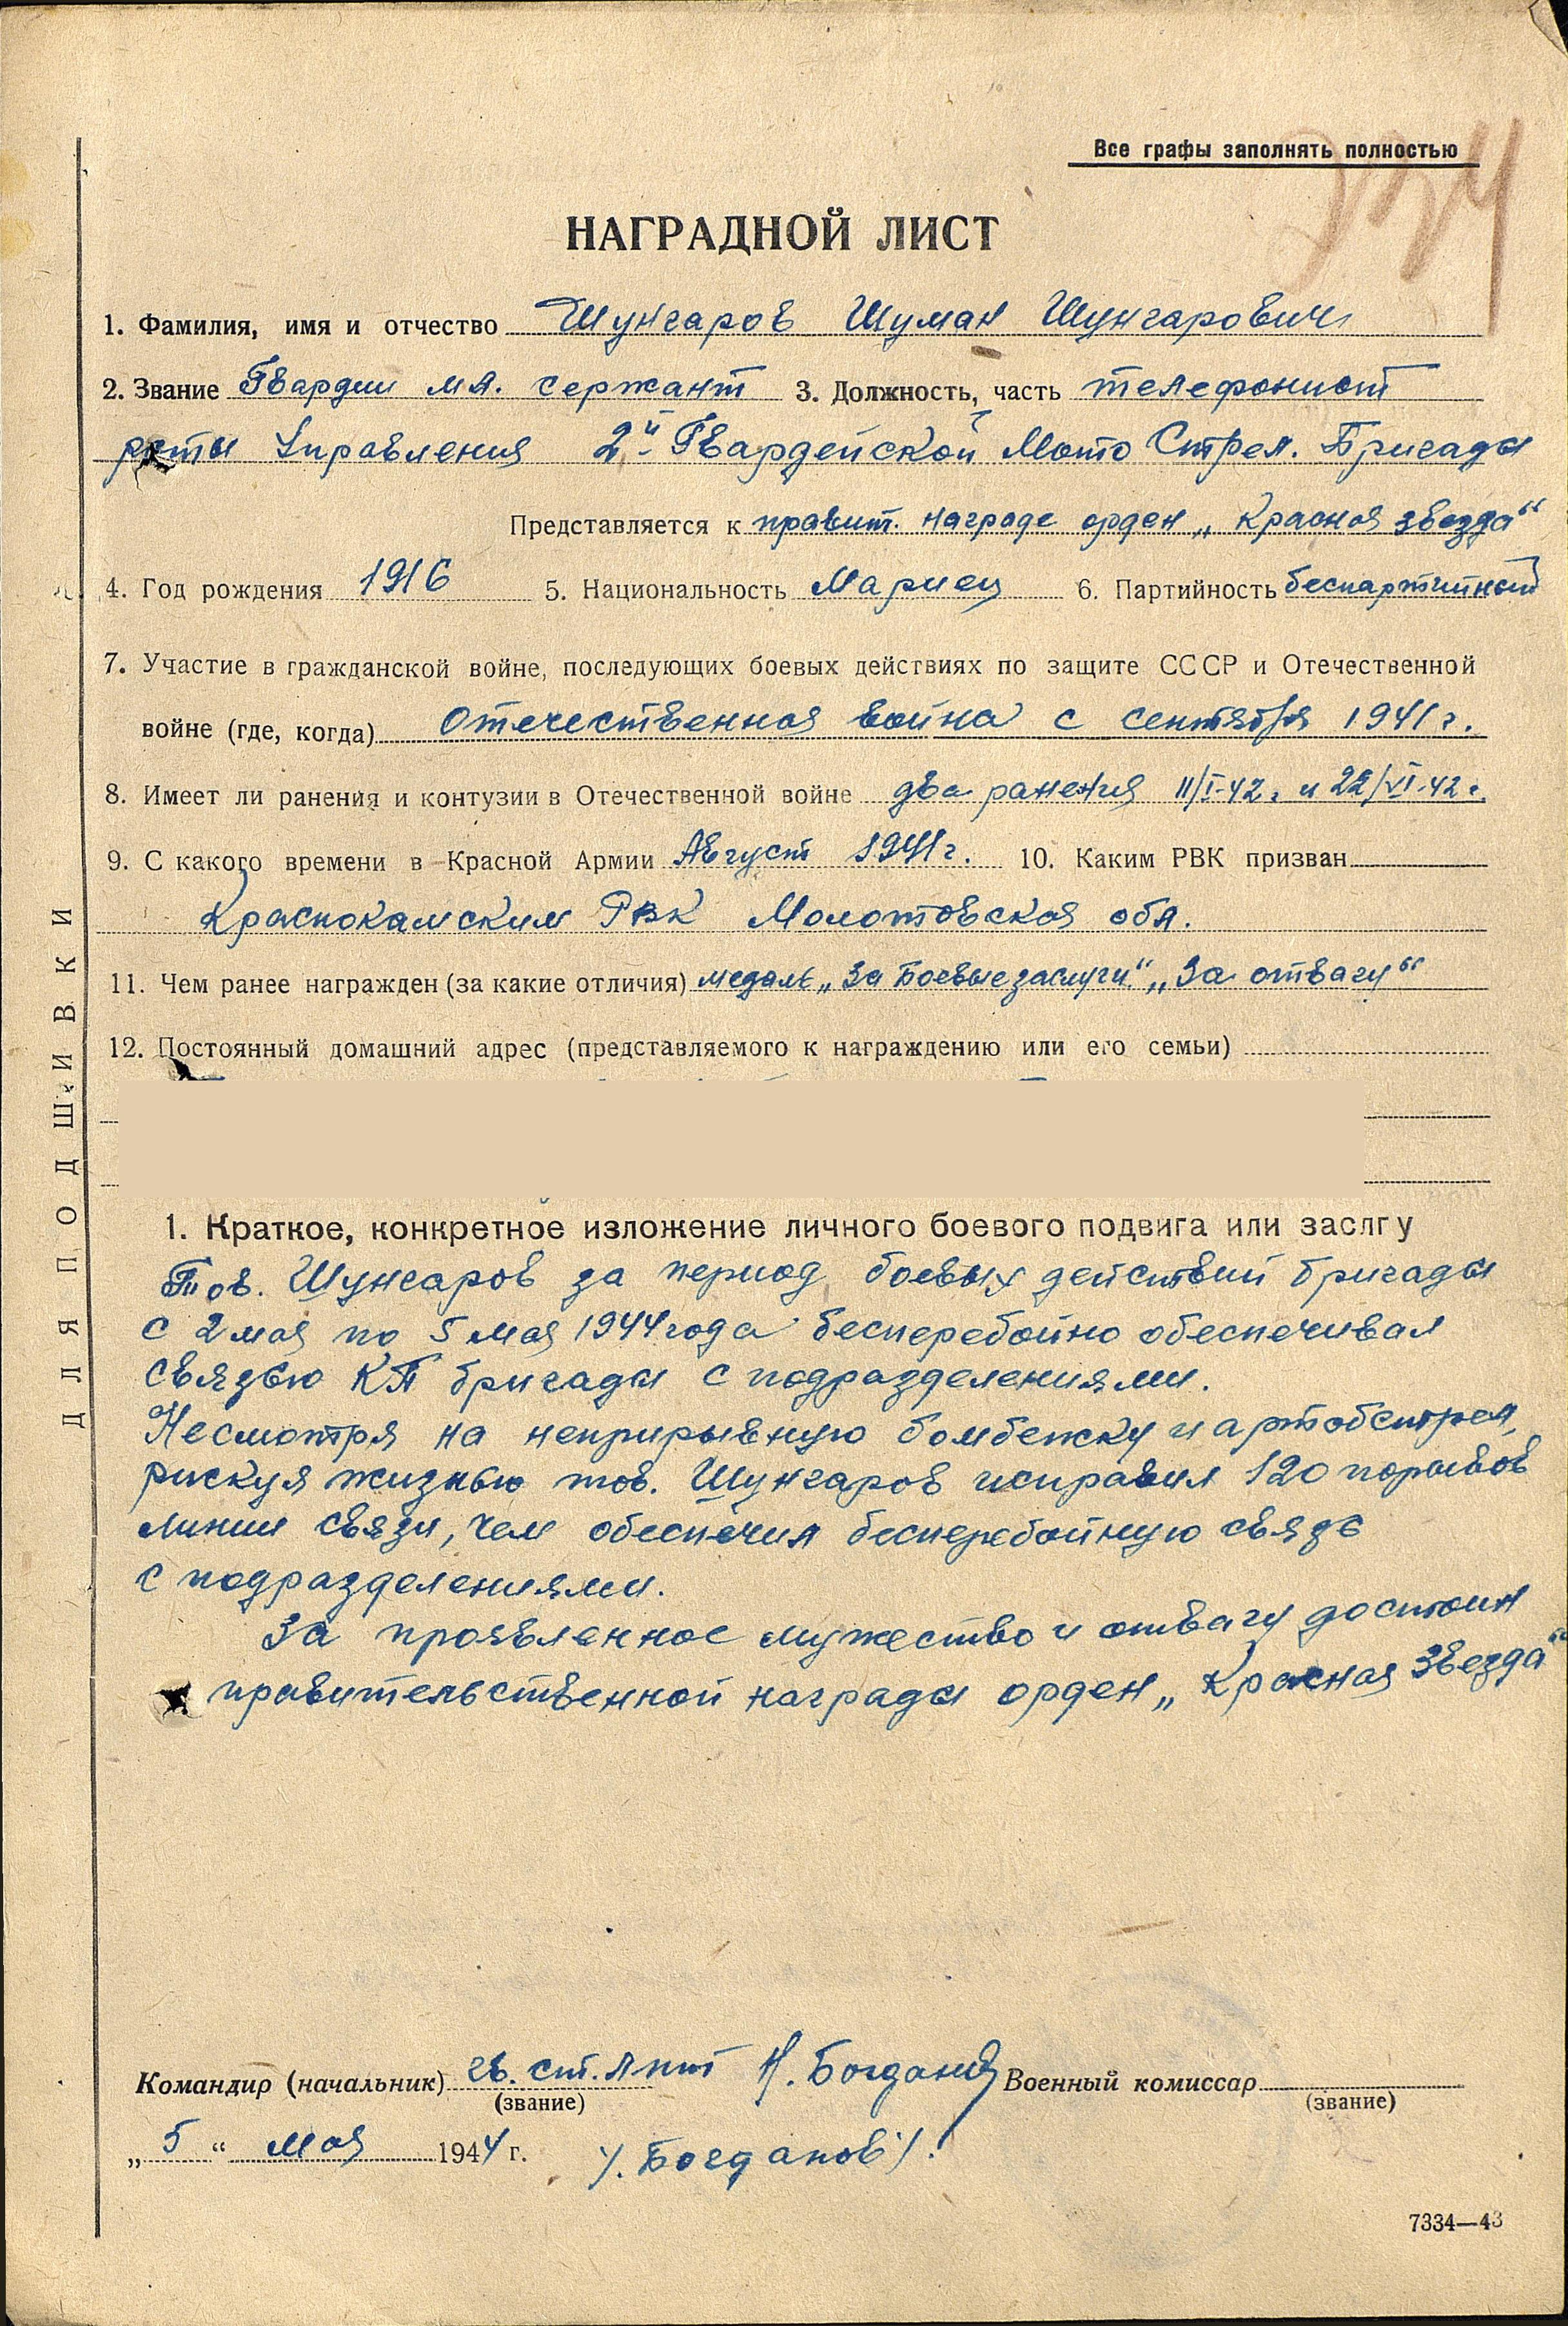 Все графы заполнять полностью
НАГРАДНОЙ ЛИСТ
1. Фамилия, имя и отчество Шунгаров Шуман Шунгарович
2. Звание Гвардии мл. сержант 3. Должность, часть телефонист
роты Управления 2й Гвардейской Мото Стрел. Бригады
Представляется к правит. награде орден „Красная звезда“
4. Год рождения 1916 5. Национальность Мариец 6. Партийность беспартийный
7. Участие в гражданской войне, последующих боевых действиях по защите СССР и Отечественной
войне (где, когда) Отечественная война с сентября 1941 г.
8. Имеет ли ранения и контузии в Отечественной войне два ранения 11/I-42 г. и 22/VI-42 г.
9. С какого времени в Красной Армии Август 1941 г. 10. Каким РВК призван
Краснокамским РВК Молотовская обл.
11. Чем ранее награжден (за какие отличия) медаль „За Боевые заслуги“ „За отвагу“
12. Постоянный домашний адрес (представляемого к награждению или его семьи)
1. Краткое, конкретное изложение личного боевого подвига или заслгу
Тов. Шунгаров за период боевых действий бригады
с 2 мая по 5 мая 1944 года бесперебойно обеспечивал
связью КП бригады с подразделениями.
Несмотря на неприрывную бомбежку и артобстрел,
рискуя жизнью тов. Шунгаров исправил 120 порывов
линии связи, чем обеспечил бесперебойную связь
с подразделениями.
За проявленное мужество и отвагу достоин
правительственной награды орден „Красная Звезда“
Командир (начальник) гв. ст. л-нт Н. Богданов Военный комиссар
(звание) (звание)
„5“ мая 1944 г. /. Богданов /.
7334—43
ДЛЯ ПОДШИВКИ